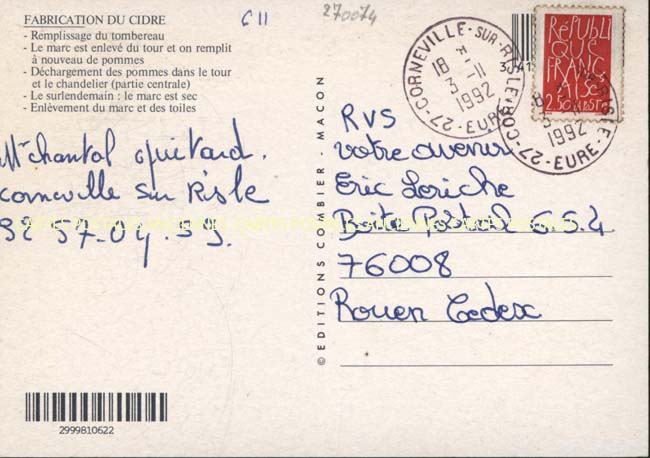 FABRICATION DU CIDRE
- Remplissage du tombereau
- Le marc est enlevé du tour et on remplit
à nouveau de pommes
- Déchargement des pommes dans le tour
et le chandelier (partie centrale)
- Le surlendemain : le marc est sec
- Enlèvement du marc et des toiles
C 11
270074
Mme chantal quitard.
corneville sur Risle
32 57.04.53.
2999810622
© EDITIONS COMBIER - MACON
27-CORNEVILLE-SUR-RISLE-EURE
18 H
3-11
1992
27-CORNEVILLE-SUR-RISLE-EURE
18 H
3-11
1992
RÉPUBLI
QUE
FRANÇ
AISE
2,50
RVS
votre avenir
Eric Loriche
Boite Postal 6.5.4
76008
Rouen Cedex